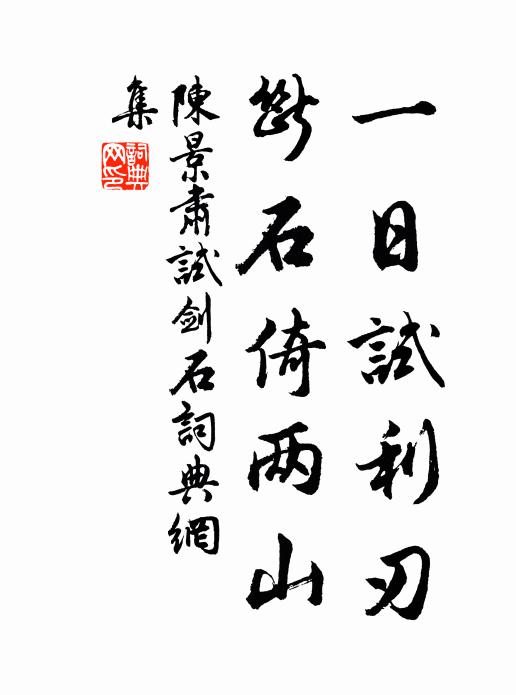 一日試利刃
斷石倚两山
陳景肅試劍石詞典網
集
詞典网印